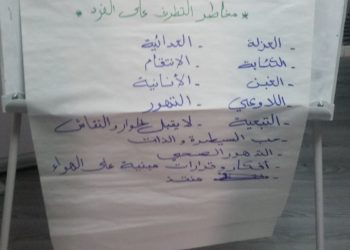 * مخاطر التطرف على الفرد *
- العزلة - العدائية
- الكئابة - الانتقام
- العنف - الأنانية
- اللاوعي - التهور
- التبعية - لا يقبل الحوار والنقاش
- حب السيطرة و الذات
- التدهور الصحي
- افكار و قرارات مبنية على الهواء